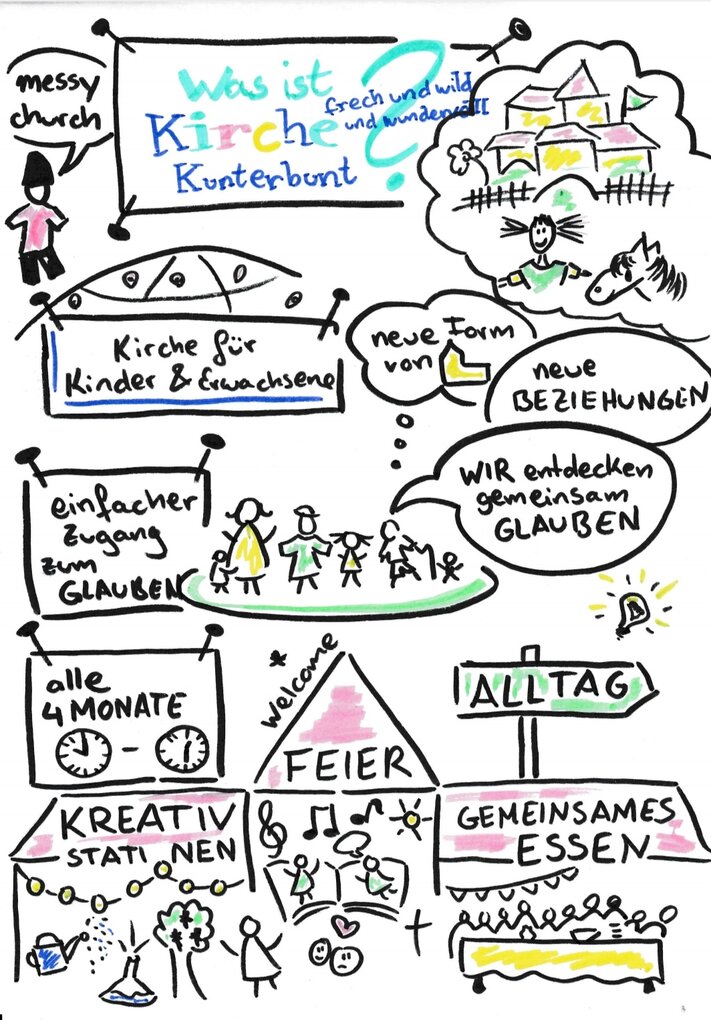 messy
church
Was ist
Kirche
Kunterbunt
?
frech und wild
und wundervoll
Kirche für
Kinder & Erwachsene
neue Form
von
neue
BEZIEHUNGEN
WIR entdecken
gemeinsam
GLAUBEN
einfacher
Zugang
zum
GLAUBEN
alle
4 MONATE
-
* Welcome
FEIER
ALLTAG
KREATIV
STATI NEN
GEMEINSAMES
ESSEN